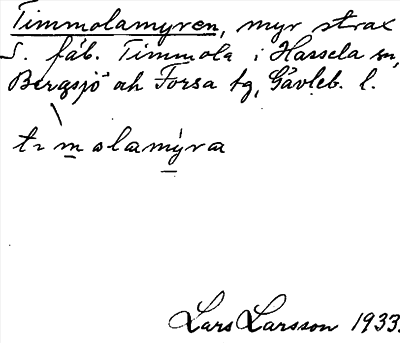 Timmolamyren, myr strax
S. fäb. Timmola i Hassela sn,
Bergsjö och Forsa tg, Gävleb. l.
tìmolamýra
Lars Larsson 1933.